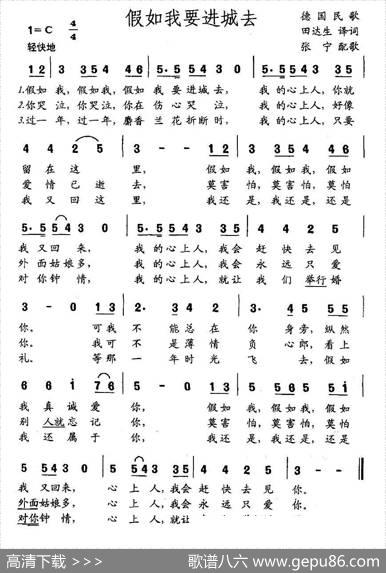 假如我要进城去
德国民歌
1=C 4/4
田达生 译词
轻快地
张宁 配歌
1 2 3 3 5 4 4 6 5·5 5 4 3 0 5·5 5 3 3 5
1.假如我,假如我,假如我要进城去,我的心上人,你就
2.你哭泣,你哭泣,你在伤心哭泣,我的心上人,好像
3.过一年,过一年,麝香兰花折断时,我的心上人,只要
4 4 2 5 3 - - 1 2 3 3 5 4 4 6
留在这里,假如我,假如我,假如
爱情已逝去,莫害怕,莫害怕,莫怕
我又回这里,我还是,我还是,还是
5·5 5 4 3 0 5·5 5 4 3 3 5 4 4 2 5
我又回来,我的心上人,我会赶快去见
外面姑娘多,我的心上人,我会永远只爱
对你钟情,我的心上人,就让我们举行婚
3 - 0 1 3 2· 3 4 2 3· 4 5 5 5
你。可我不能总在你身旁,纵然
你。可我不是薄情负心郎,看上
礼。等那一年时光飞去,假如
6 6 1 7 6 5 - 0 1 3 5 5 6 5 5 5 1
我真诚爱你,假如我,假如我,假如
别人就忘记你,莫害怕,莫害怕,莫怕
我还属于你,我还是,我还是,还是
5 5 4 3 0 5 5 4 3 3 5 4 4 2 5 3 - - 0
我又回来,心上人,我会赶快去见你。
外面姑娘多,心上人,我会永远只爱你。
对你钟情,心上人,就让
高清下载 >>> 歌谱八六 www.gepu86.com